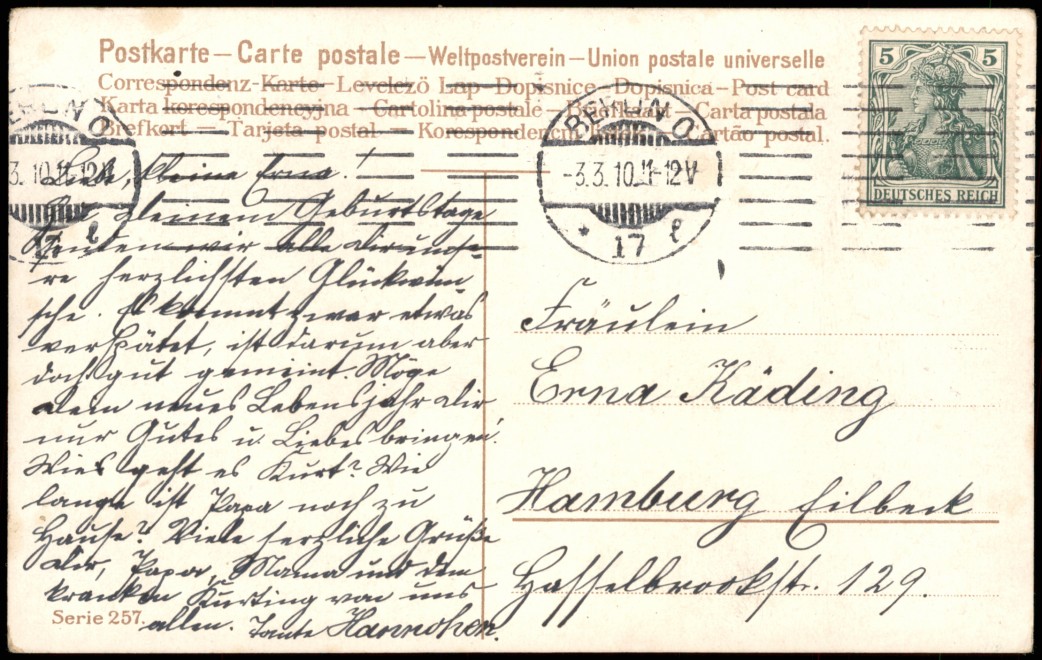 Postkarte — Carte postale — Weltpostverein — Union postale universelle
Correspondenz-Karte — Levelező Lap — Dopisnice — Dopisnica — Post card
Karta korespondencyjna — Cartolina postale — Carta postala
Brefkort — Tarjeta postal — Cartão postal.
5 5
DEUTSCHES REICH
BERLIN O
-3.3.10.11-12V
* 17 l
Liebe, kleine Erna!
Zu Deinem Geburtstage
senden wir alle Dir unse-
re herzlichsten Glückwün-
sche. Es kommt zwar etwas
verspätet, ist darum aber
doch gut gemeint. Möge
Dein neues Lebensjahr Dir
nur Gutes u. Liebes bringen.
Wie geht es Kurt? Wie
lange ist Papa noch zu
Hause? Viele herzliche Grüße
Dir, Papa, Mama und dem
kranken Kurting von uns
allen. Tante Hannchen.
Fräulein
Erna Käding
Hamburg Eilbeck
Hasselbrookstr. 129.
Serie 257.